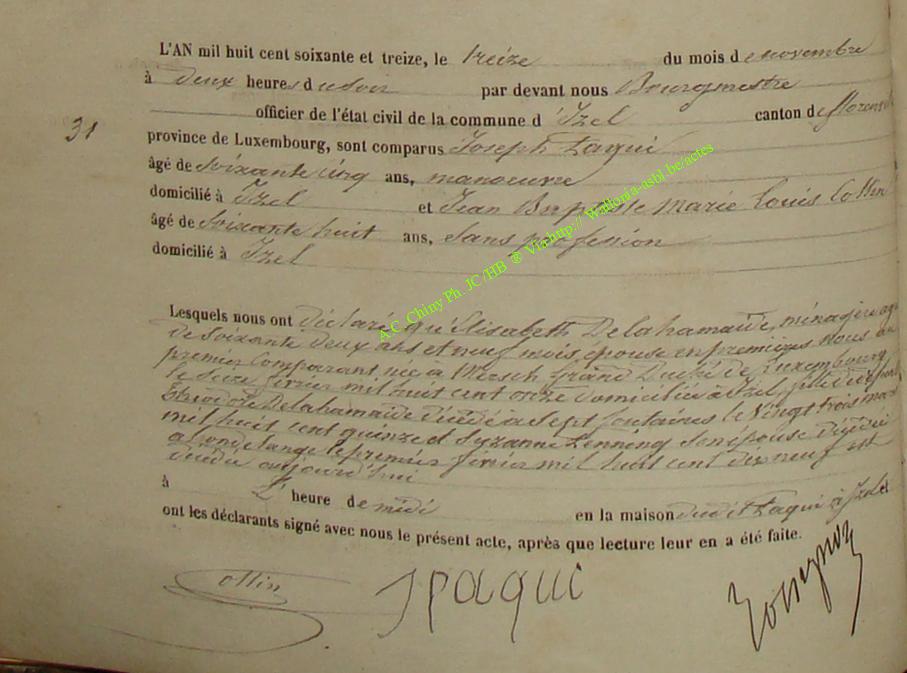 L'AN mil huit cent soixante et treize, le treize du mois de novembre
à deux heures du soir par devant nous Bourgmestre
officier de l'état civil de la commune d'Izel canton de
31
province de Luxembourg, sont comparus Joseph Paqui
âgé de soixante cinq ans, manoeuvre
domicilié à Izel et Jean Baptiste Marie Louis Collin
âgé de soixante huit ans, sans profession
domicilié à Izel
A.C. Chiny Ph. JC /HB ® Via http:// Wallonia-asbl.be/actes
Lesquels nous ont déclaré qu'Elisabeth Delahamaide, ménagère agée
de soixante deux ans et neuf mois, épouse en premières
premier comparant née à Mersch Grand Duché de Luxembourg
le seize février mil huit cent onze domiciliée à Izel, fille de
Delahamaide décédé à Sept fontaines le vingt trois mars
mil huit cent quinze et Suzanne Henning son épouse décédée
à le premier février mil huit cent dix neuf est
décédée aujourd'hui
à heure de midi en la maison dudit Paqui à Izel et
ont les déclarants signé avec nous le présent acte, après que lecture leur en a été faite.
ollin J paqui